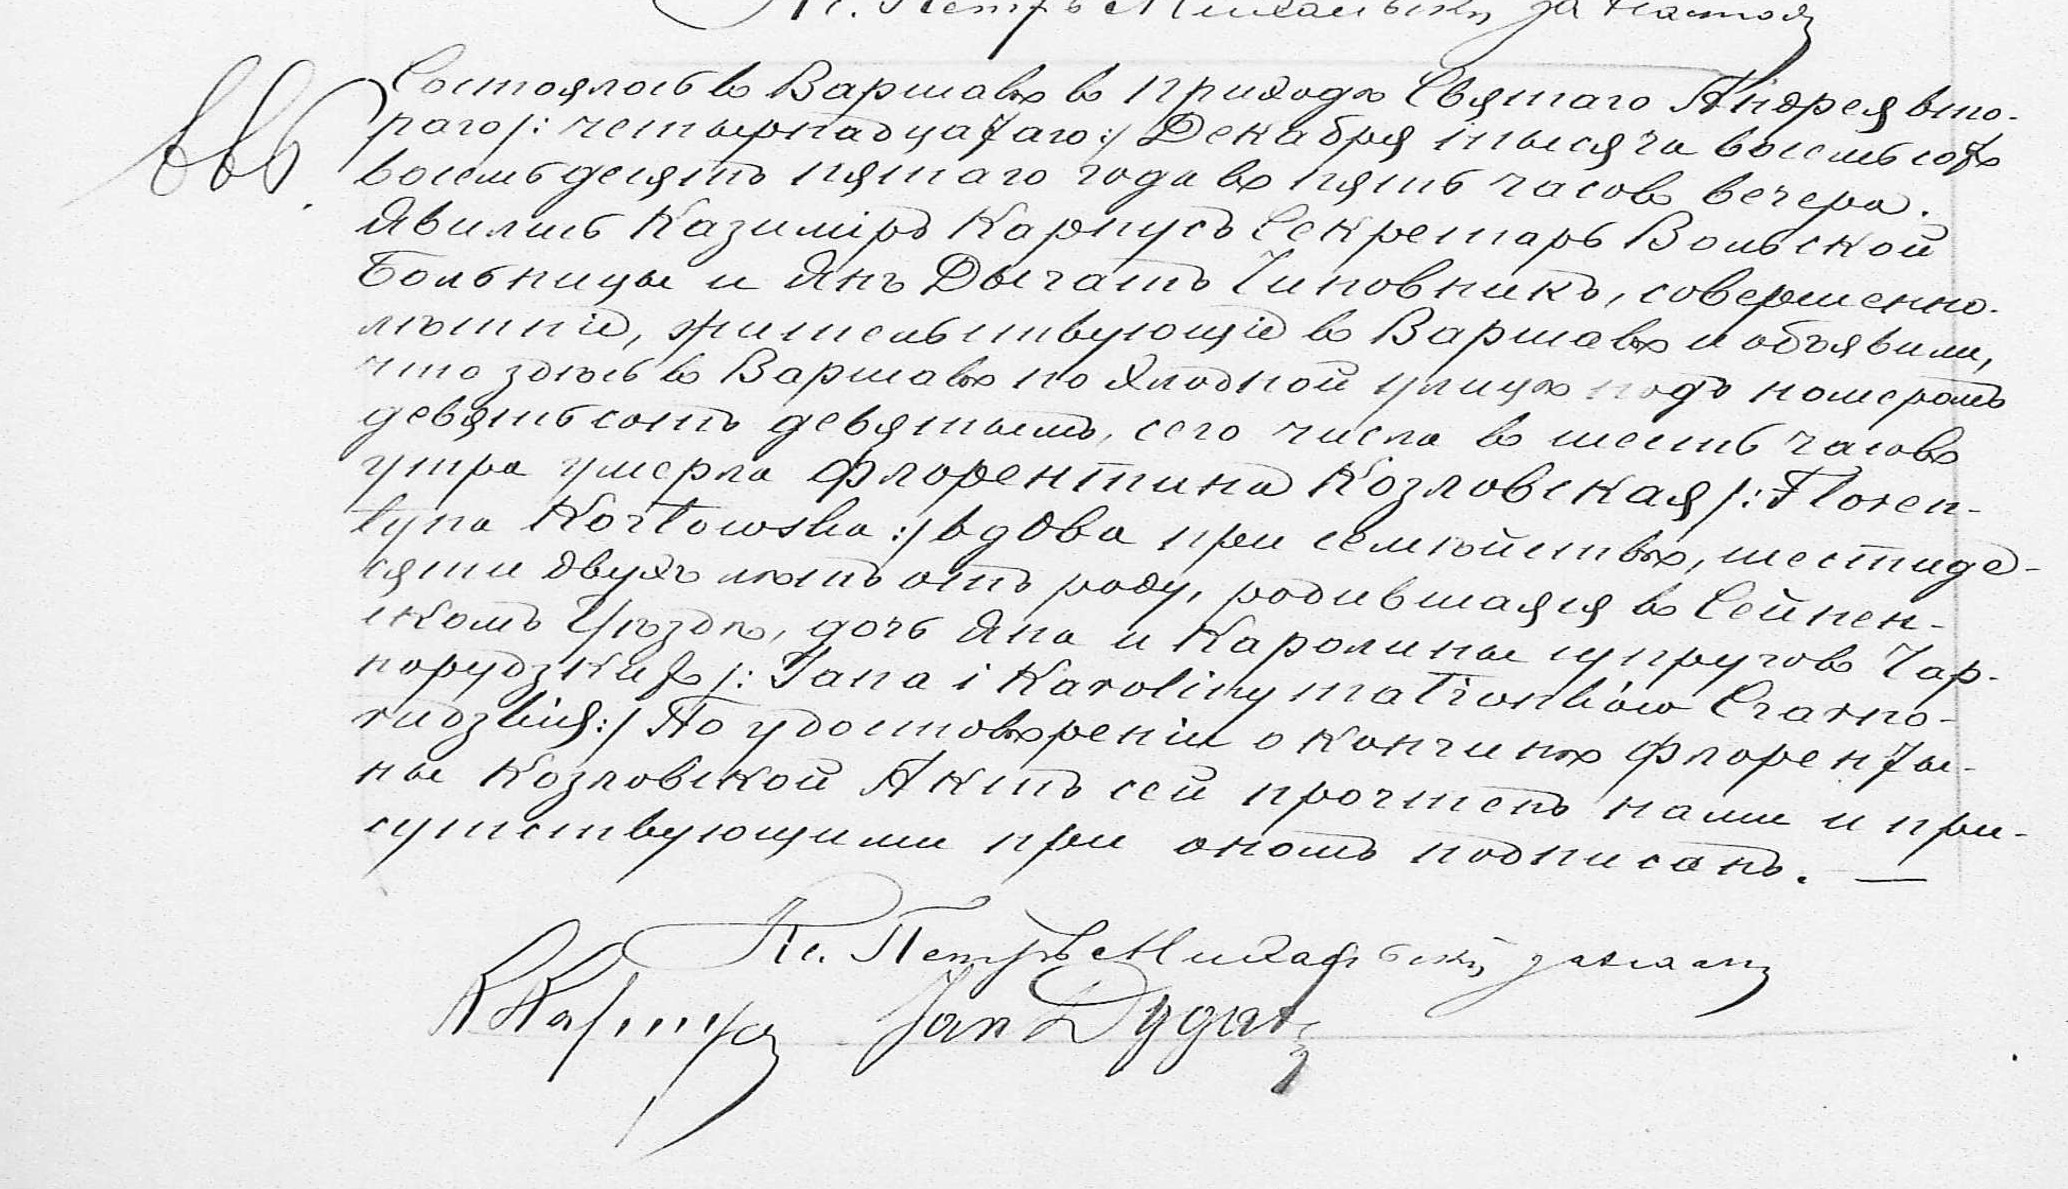 Кс. Петръ Михальскій за Настоя
666.
Состоялось въ Варшавѣ въ приходѣ Святаго Андрея вто-
раго /: четырнадцатаго :/ Декабря тысяча восемьсотъ
восемьдесятъ пятаго года въ пять часовъ вечера.
Явились Казиміръ Карпусъ Секретарь Вольской
Больницы и Янъ Дыгатъ Чиновникъ, совершенно-
лѣтніе, жительствующіе въ Варшавѣ и объявили,
что здѣсь въ Варшавѣ по Хлодной улицѣ подъ номеромъ
девятьсотъ девятымъ, сего числа въ шесть часовъ
утра умерла Флорентина Козловская /: Floren-
tyna Kozłowska :/ вдова при семѣйствѣ, шестиде-
сяти двухъ лѣтъ отъ роду, родившаяся въ Сейнен-
скомъ Уѣздѣ, дочь Яна и Каролины супруговъ Чар-
норудзкихъ /: Jana i Karoliny małżonków Czarno-
rudzkich :/ По удостовѣреніи о кончинѣ Флоренты-
ны Козловской Актъ сей прочтенъ нами и при-
сутствующими при ономъ подписанъ. —
Кс. Петръ Михальскій за Наст
K Karpus Jan Dygat